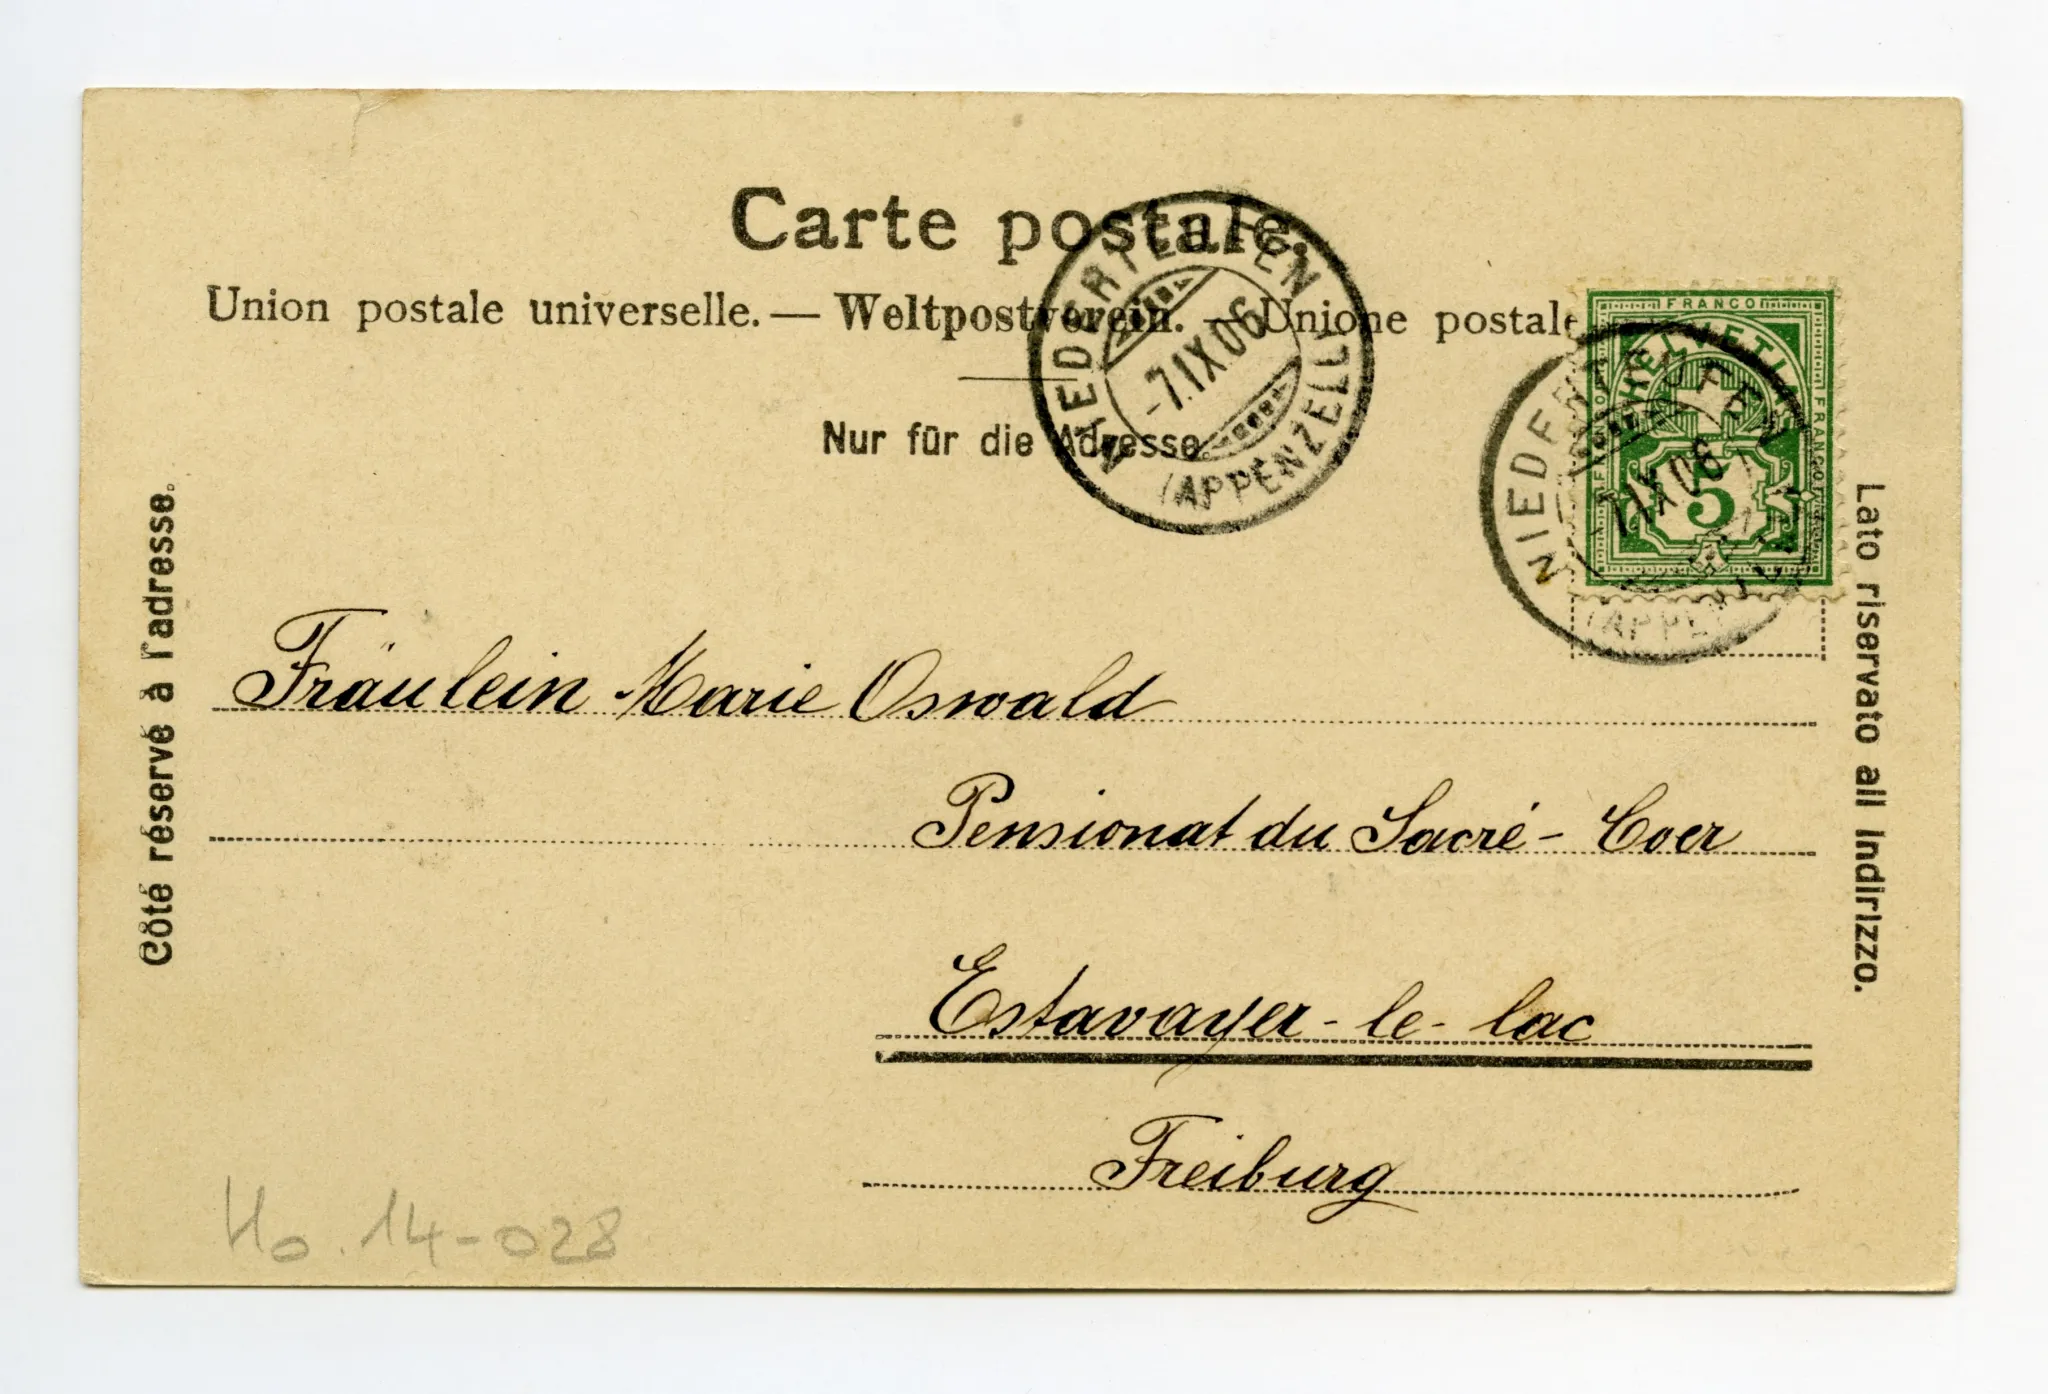 Carte postale.
Union postale universelle. — Weltpostverein. — Unione postale
Nur für die Adresse.
NIEDERTEUFEN
-7.IX.06
(APPENZELL)
FRANCO
HELVETIA
FRANCO
FRANCO
5
NIEDERTEUFEN
-7.IX.06
Côté réservé à l'adresse.
Lato riservato all indirizzo.
Fräulein Marie Oswald
Pensionat du Sacré-Coer
Estavayer-le-lac
Freiburg
Ho. 14-028